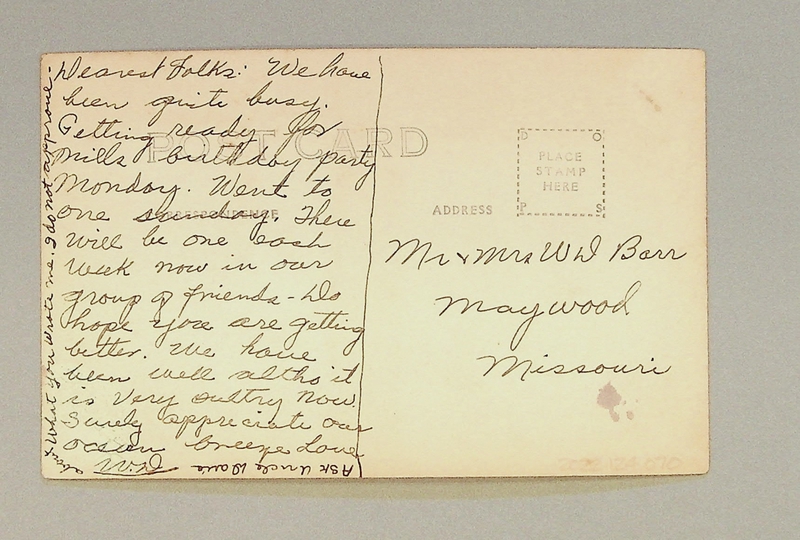 Dearest Folks: We have
been quite busy.
Getting ready for
Mills birthday party
Monday. Went to
one Sunday. There
will be one each
week now in our
group of friends - Do
hope you are getting
better. We have
been well altho it
is very sultry now.
Surely appreciate our
ocean breeze Love
Ask Uncle Dave
about what you wrote me. I do not approve.
POST CARD
CORRESPONDENCE
ADDRESS
D O
PLACE
STAMP
HERE
P S
Mr & Mrs W D Barr
Maywood
Missouri